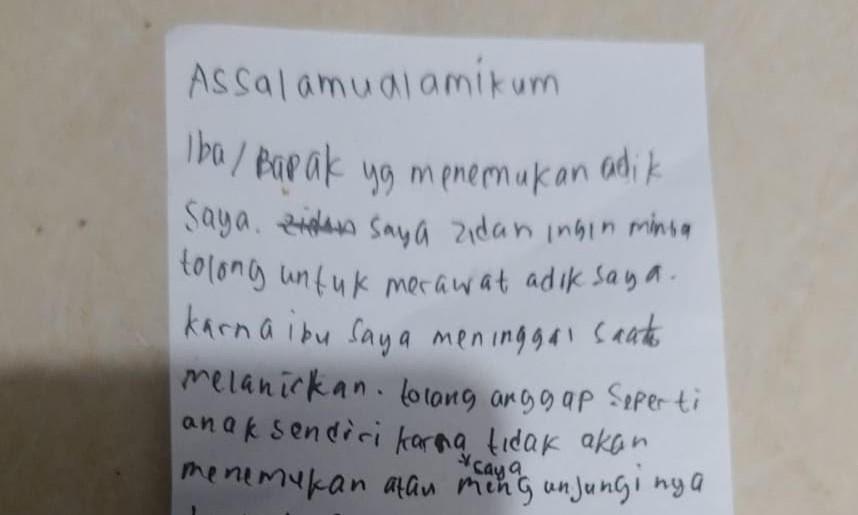 Assalamualamikum
Iba/Bapak yg menemukan adik
saya. zidan saya zidan ingin minta
tolong untuk merawat adik saya.
karna ibu saya meninggal saat
melanirkan. tolong anggap seperti
anak sendiri karna tidak akan
*saya
menemukan atau mengunjungi nya